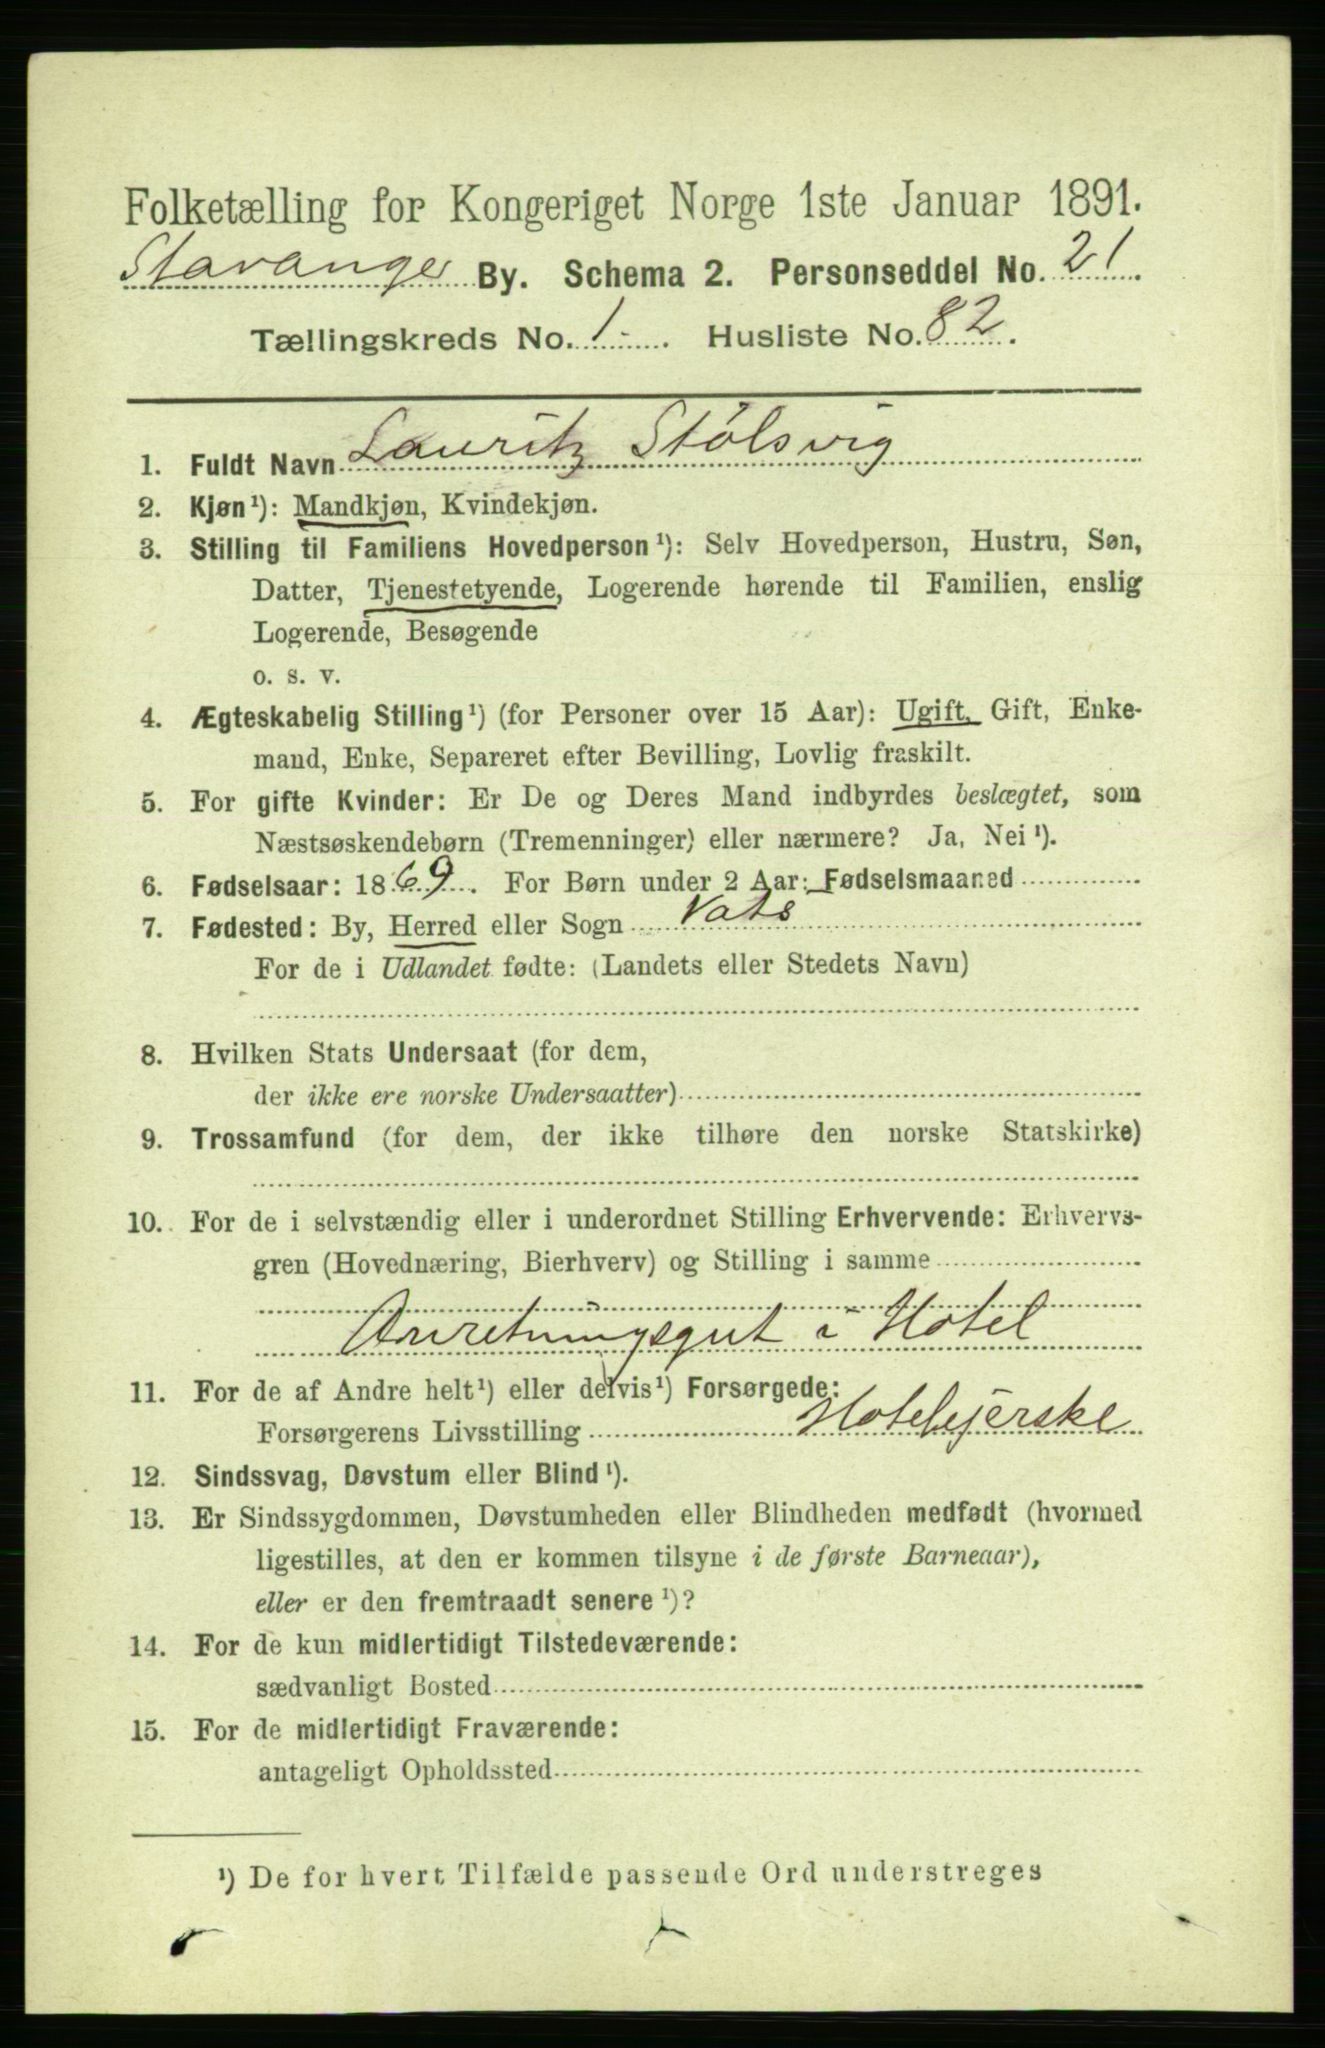 Folketælling for Kongeriget Norge 1ste Januar 1891.
Stavanger By. Schema 2. Personseddel No. 21.
Tællingskreds No. 1. Husliste No. 82.
1. Fuldt Navn Lauritz Stölsvig
2. Kjøn¹): Mandkjøn, Kvindekjøn.
3. Stilling til Familiens Hovedperson¹): Selv Hovedperson, Hustru, Søn,
Datter, Tjenestetyende, Logerende hørende til Familien, enslig
Logerende, Besøgende
o. s. v.
4. Ægteskabelig Stilling¹) (for Personer over 15 Aar): Ugift, Gift, Enke-
mand, Enke, Separeret efter Bevilling, Lovlig fraskilt.
5. For gifte Kvinder: Er De og Deres Mand indbyrdes beslægtet, som
Næstsøskendebørn (Tremenninger) eller nærmere? Ja, Nei¹).
6. Fødselsaar: 1869. For Børn under 2 Aar: Fødselsmaaned
7. Fødested: By, Herred eller Sogn Vats
For de i Udlandet fødte: (Landets eller Stedets Navn)
8. Hvilken Stats Undersaat (for dem,
der ikke ere norske Undersaatter)
9. Trossamfund (for dem, der ikke tilhøre den norske Statskirke)
10. For de i selvstændig eller i underordnet Stilling Erhvervende: Erhvervs-
gren (Hovednæring, Bierhverv) og Stilling i samme
Anretningsgut i Hotel
11. For de af Andre helt¹) eller delvis¹) Forsørgede:
Forsørgerens Livsstilling Hotelejerske
12. Sindssvag, Døvstum eller Blind¹).
13. Er Sindssygdommen, Døvstumheden eller Blindheden medfødt (hvormed
ligestilles, at den er kommen tilsyne i de første Barneaar),
eller er den fremtraadt senere¹)?
14. For de kun midlertidigt Tilstedeværende:
sædvanligt Bosted
15. For de midlertidigt Fraværende:
antageligt Opholdssted
¹) De for hvert Tilfælde passende Ord understreges